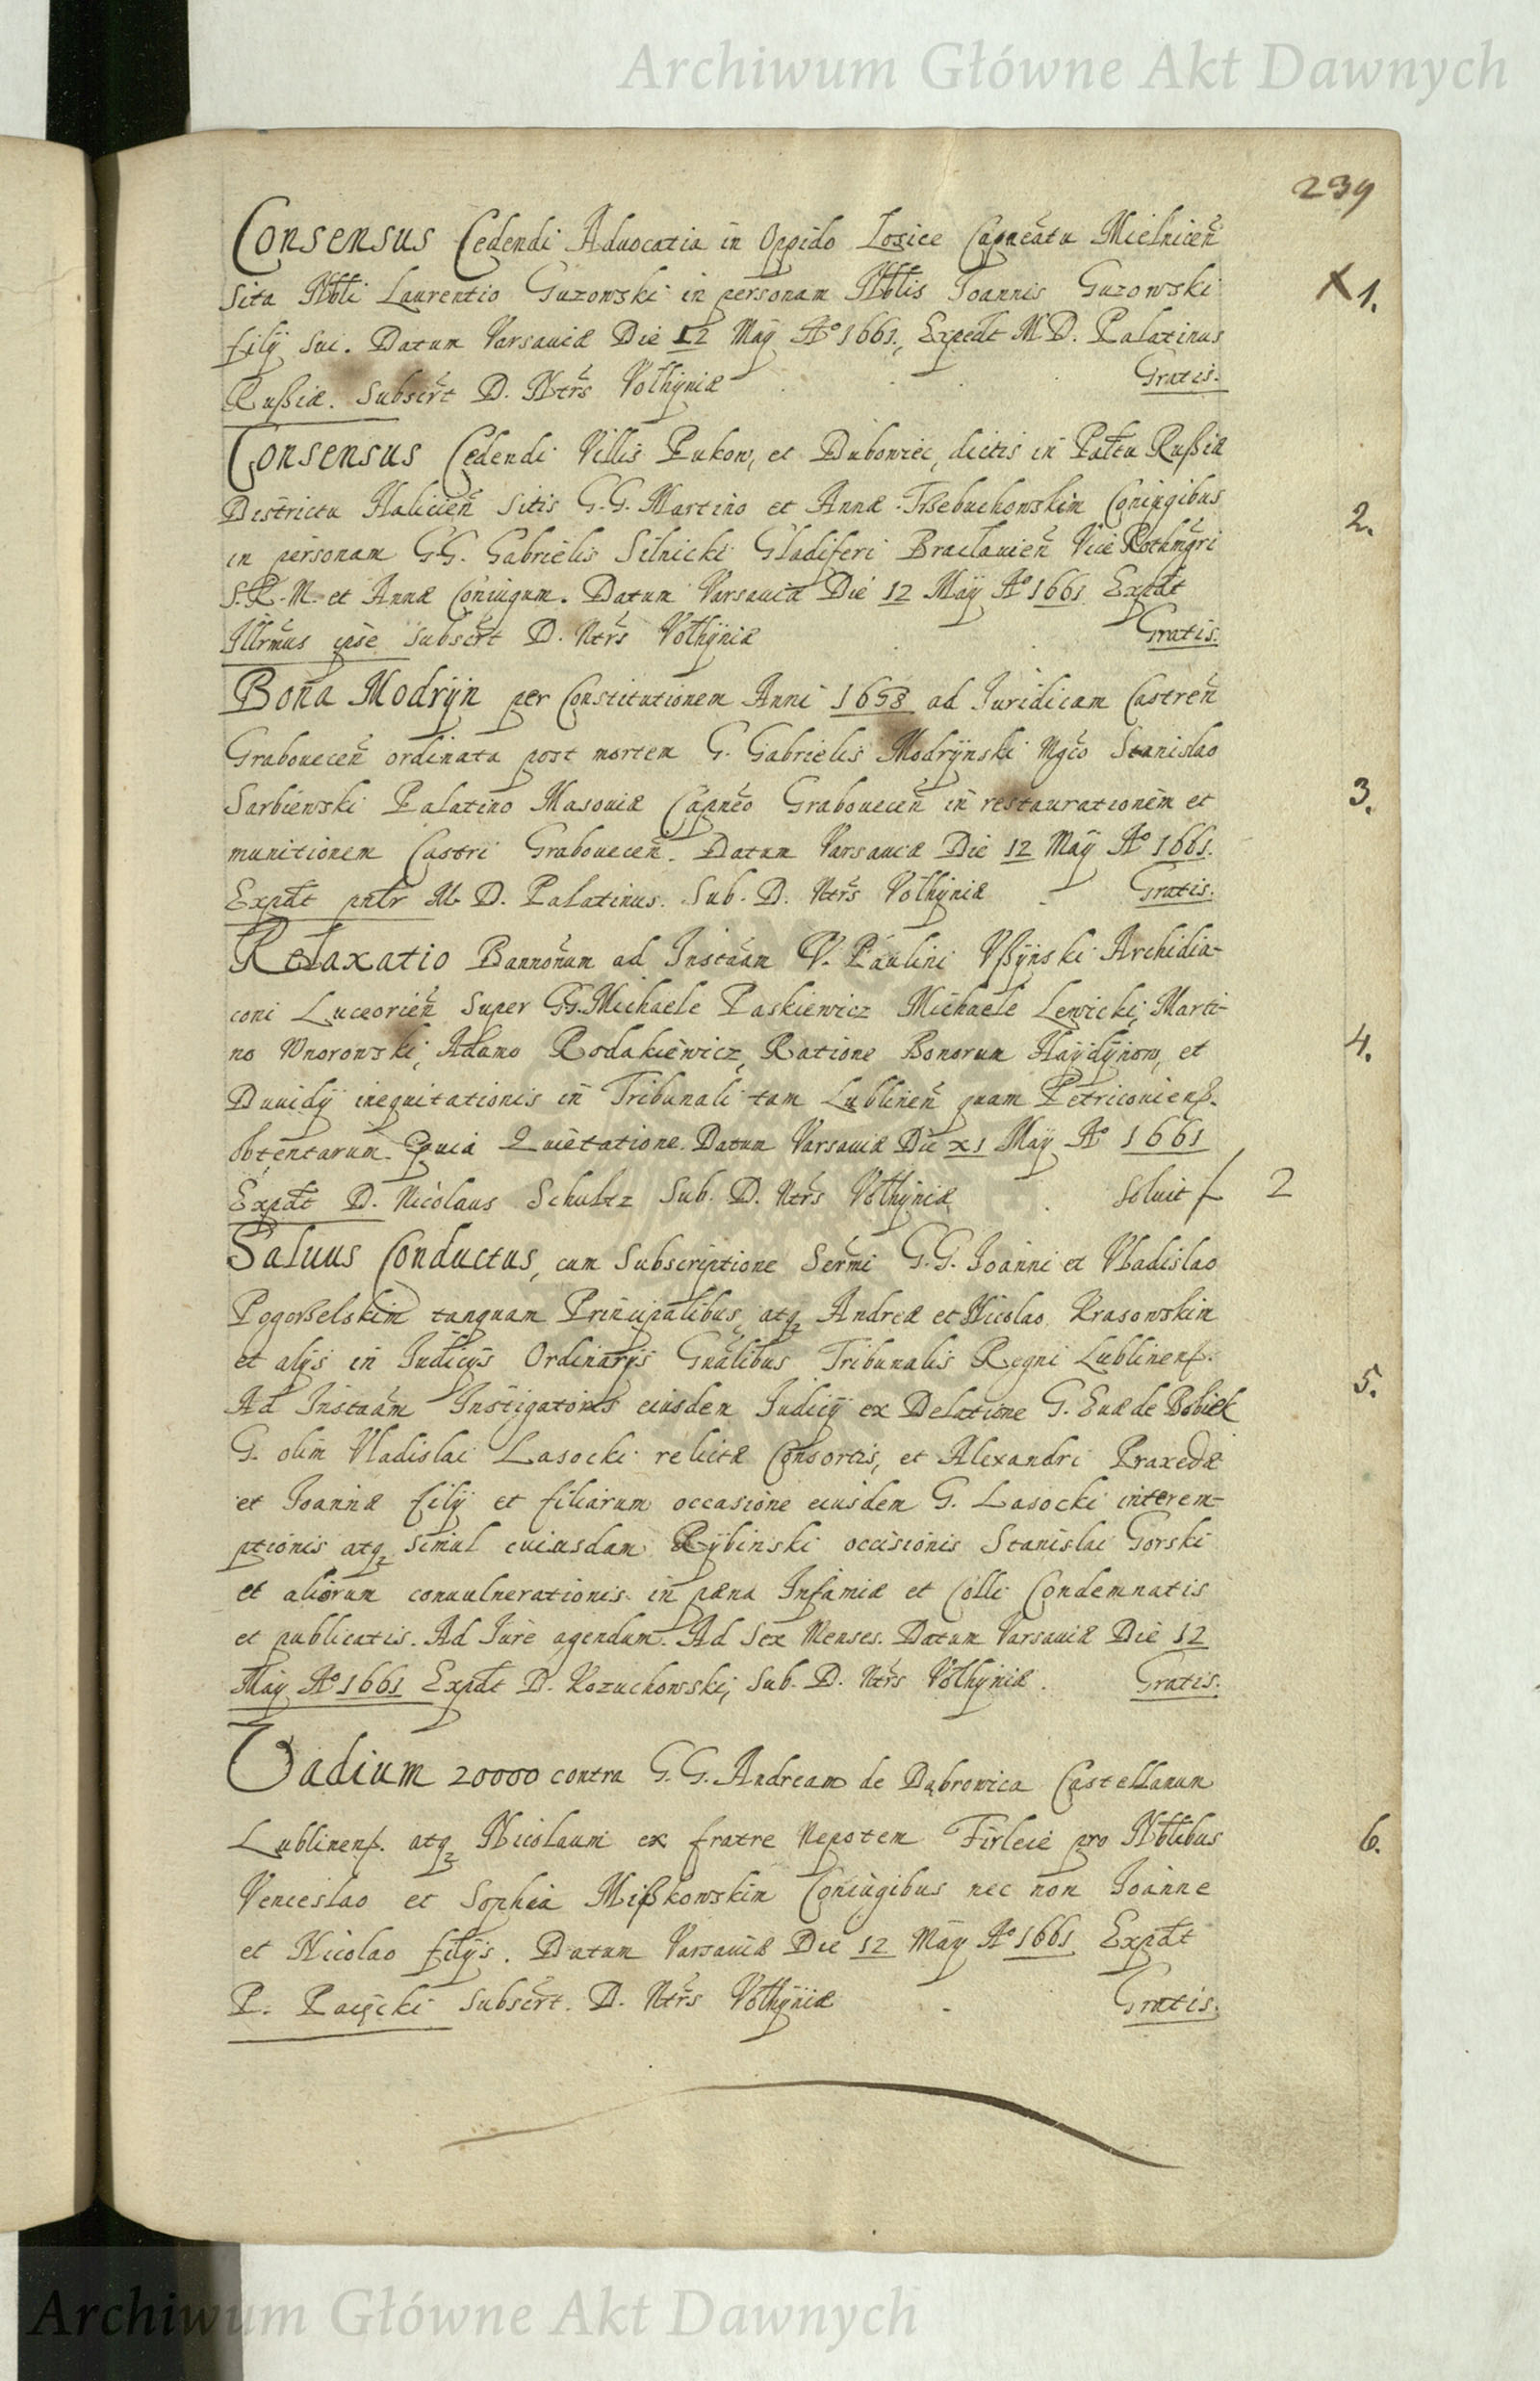 Archiwum Główne Akt Dawnych
239
Consensus Cedendi Aduocatia in Oppido Łosice Capneatu Mielnicen̄
Sita Nbli Laurentio Guzowski in personam Nblis Joannis Guzowski
X 1.
filÿ sui. Datum Varsauiæ Die 12 Maÿ Aº 1661. Expedt M.D. Palatinus
Rußiæ. Subscrt D. Ntrs Volhÿniæ Gratis.
Consensus Cedendi Villis Pukow, et Dubowiec, dictis in Paltu Rußiæ
Districtu Halicien̄ Sitis G.G. Martino et Annæ Trzebuchowskim Coniugibus
2.
in personam G.G. Gabrielis Silnicki Gladiferi Braclauien̄ Vice Rothmgri
S.R.M. et Annæ Coniugum. Datum Varsauiæ Die 12 Maÿ Aº 1661 Expdt
Illrmus ipse Subscrt D. Ntrs Volhÿniæ Gratis.
Bona Modrÿn per Constitutionem Anni 1658 ad Juridicam Castren̄
Grabouecen̄ ordinata post mortem G. Gabrielis Modrÿnski Mgco Stanislao
Sarbiewski Palatino Masouiæ Capneo Grabouecen̄ in restaurationem et
3.
munitionem Castri Grabouecen̄. Datum Varsauiæ Die 12 Maÿ Aº 1661.
Expdt pntr M. D. Palatinus. Sub. D. Ntrs Volhÿniæ - Gratis.
Relaxatio Bannonum ad Instaam V. Paulini Vßÿnski Archidia-
coni Luceorien̄ Super GG. Michaele Paskiewicz Michaele Lewicki, Marti-
no Wnorowski, Adamo Rodakiewicz, Ratione Bonorum Haÿdÿnow, et
4.
Dauidÿ inequitationis in Tribunali tam Lublinen̄ quam Petriconienß.
obtentarum. Preuia Quietatione. Datum Varsauiæ Die XI Maÿ Aº 1661
Expdt D. Nicolaus Schultz Sub. D. Ntrs Volhÿniæ Soluit f 2
Saluus Conductus, cum Subscriptione Sermi G.G. Joanni et Vladislao
Pogorzelskim tanquam Principalibus, atq Andreæ et Nicolao Krasowskim
et alÿs in Judicÿs Ordinarÿs Gnalibus Tribunalis Regni Lublinenß.
5.
Ad Instaam Instigatoris eiusdem Judicÿ ex Delatione G. Euæ de Bobiek
G. olim Vladislai Lasocki relictæ Consortis, et Alexandri Praxedæ
et Joannæ filÿ et filiarum occasione eiusdem G. Lasocki interem-
ptionis atq simul cuiusdam Rÿbinski occisionis Stanislai Gorski
et aliorum conuulnerationis in pæna Infamiæ et Colli Condemnatis
et publicatis. Ad Jure agendum. Ad Sex Menses. Datum Varsauiæ Die 12
Maÿ Aº 1661 Expdt D. Kozuchowski, Sub. D. Ntrs Volhÿniæ. Gratis.
Vadium 20000 contra G.G. Andream de Dąbrowica Castellanum
Lublinenß. atq Nicolaum ex fratre Nepotem Firleie pro Nblibus
6.
Venceslao et Sophia Mißkowskim Coniugibus nec non Joanne
et Nicolao filÿs. Datum Varsauiæ Die 12 Maÿ Aº 1661 Expdt
P. Subscrt. D. Ntrs Volhÿniæ - Gratis.
Archiwum Główne Akt Dawnych